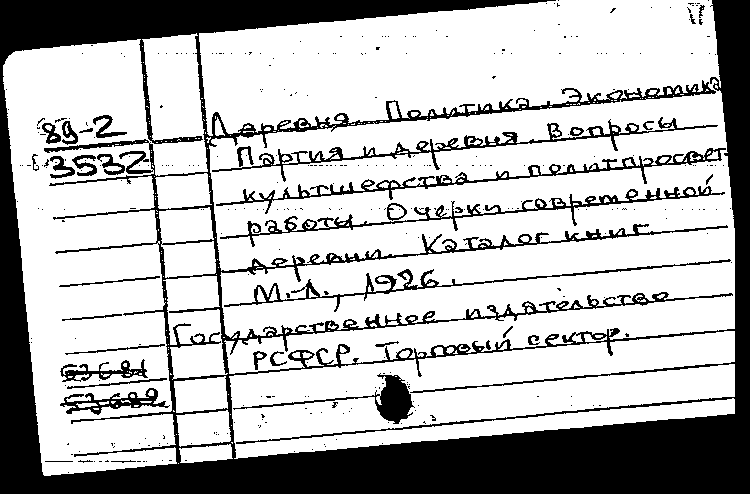 89-2
3532
Деревня. Политика. Экономика
Партия и деревня. Вопросы
культшефства и политпросвет-
работы. Очерки современной
деревни. Каталог книг.
М.-Л., 1926.
Государственное издательство
РСФСР. Торговый сектор.
53681
53682